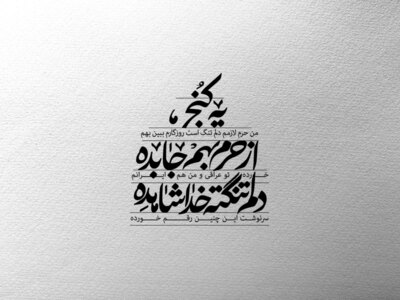 یه کُنجِ،
من حرم لازمم دلم تنگ است روزگارم ببین بهم
از حرم بهم جا بده
خورده، تو عراقی و من هم ایرانم
دلم تنگته خدا شاهدِه
سرنوشت این چنین رقم خورده